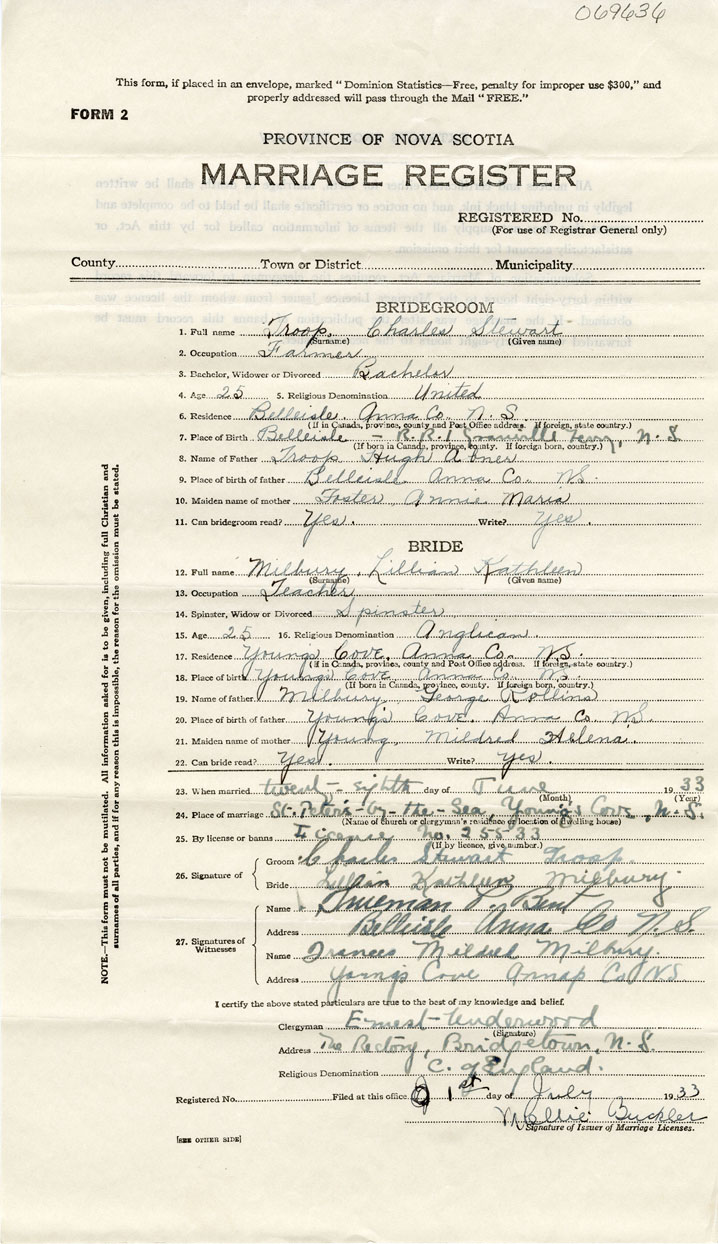 069636
This form, if placed in an envelope, marked "Dominion Statistics—Free, penalty for improper use $300," and
properly addressed will pass through the Mail "FREE."
FORM 2
PROVINCE OF NOVA SCOTIA
MARRIAGE REGISTER
REGISTERED No.
(For use of Registrar General only)
County Town or District Municipality
BRIDEGROOM
1. Full name Troop, Charles Stewart
(Surname) (Given name)
2. Occupation Farmer
3. Bachelor, Widower or Divorced Bachelor
4. Age 25 5. Religious Denomination United
6. Residence Belleisle Anna Co. N.S.
(If in Canada, province, county and Post Office address. If foreign, state country.)
7. Place of Birth Belleisle - R.R.1 Granville Ferry, N.S
(If born in Canada, province, county. If foreign born, country.)
8. Name of Father Troop Hugh Abner
9. Place of birth of father Belleisle Anna Co. NS.
10. Maiden name of mother Foster Annie Maria
11. Can bridegroom read? Yes. Write? Yes.
BRIDE
12. Full name Milbury, Lillian Kathleen
(Surname) (Given name)
13. Occupation Teacher
14. Spinster, Widow or Divorced Spinster
15. Age 25 16. Religious Denomination Anglican.
17. Residence Young's Cove, Anna Co. NS.
(If in Canada, province, county and Post Office address. If foreign, state country.)
18. Place of birth Young's Cove Anna Co. NS.
(If born in Canada, province, county. If foreign born, country.)
19. Name of father Milbury, George Rollins
20. Place of birth of father Young's Cove. Anna Co NS.
21. Maiden name of mother Young, Mildred Helena.
22. Can bride read? Yes. Write? Yes.
23. When married twenty-eighth day of June 1933
(Month) (Year)
24. Place of marriage St. Peter's-by-the-Sea, Young's Cove, N.S.
(Name of church or clergyman's residence or location of dwelling house)
25. By license or banns License No. 25533
(If by licence, give number.)
26. Signature of
Groom Charles Stewart Troop.
Bride Lillian Kathleen Milbury.
27. Signatures of Witnesses
Name Trueman L. Bent
Address Belleisle Anna Co N.S.
Name Frances Mildred Milbury.
Address Young's Cove Annap Co. NS
I certify the above stated particulars are true to the best of my knowledge and belief.
Clergyman Ernest Underwood
(Signature)
Address The Rectory, Bridgetown, N.S.
Religious Denomination C. of England.
Registered No. Filed at this office 1st day of July 1933
Mellie Buckler
Signature of Issuer of Marriage Licenses.
[SEE OTHER SIDE]
NOTE.—This form must not be mutilated. All information asked for is to be given, including full Christian and
surnames of all parties, and if for any reason this is impossible, the reason for the omission must be stated.